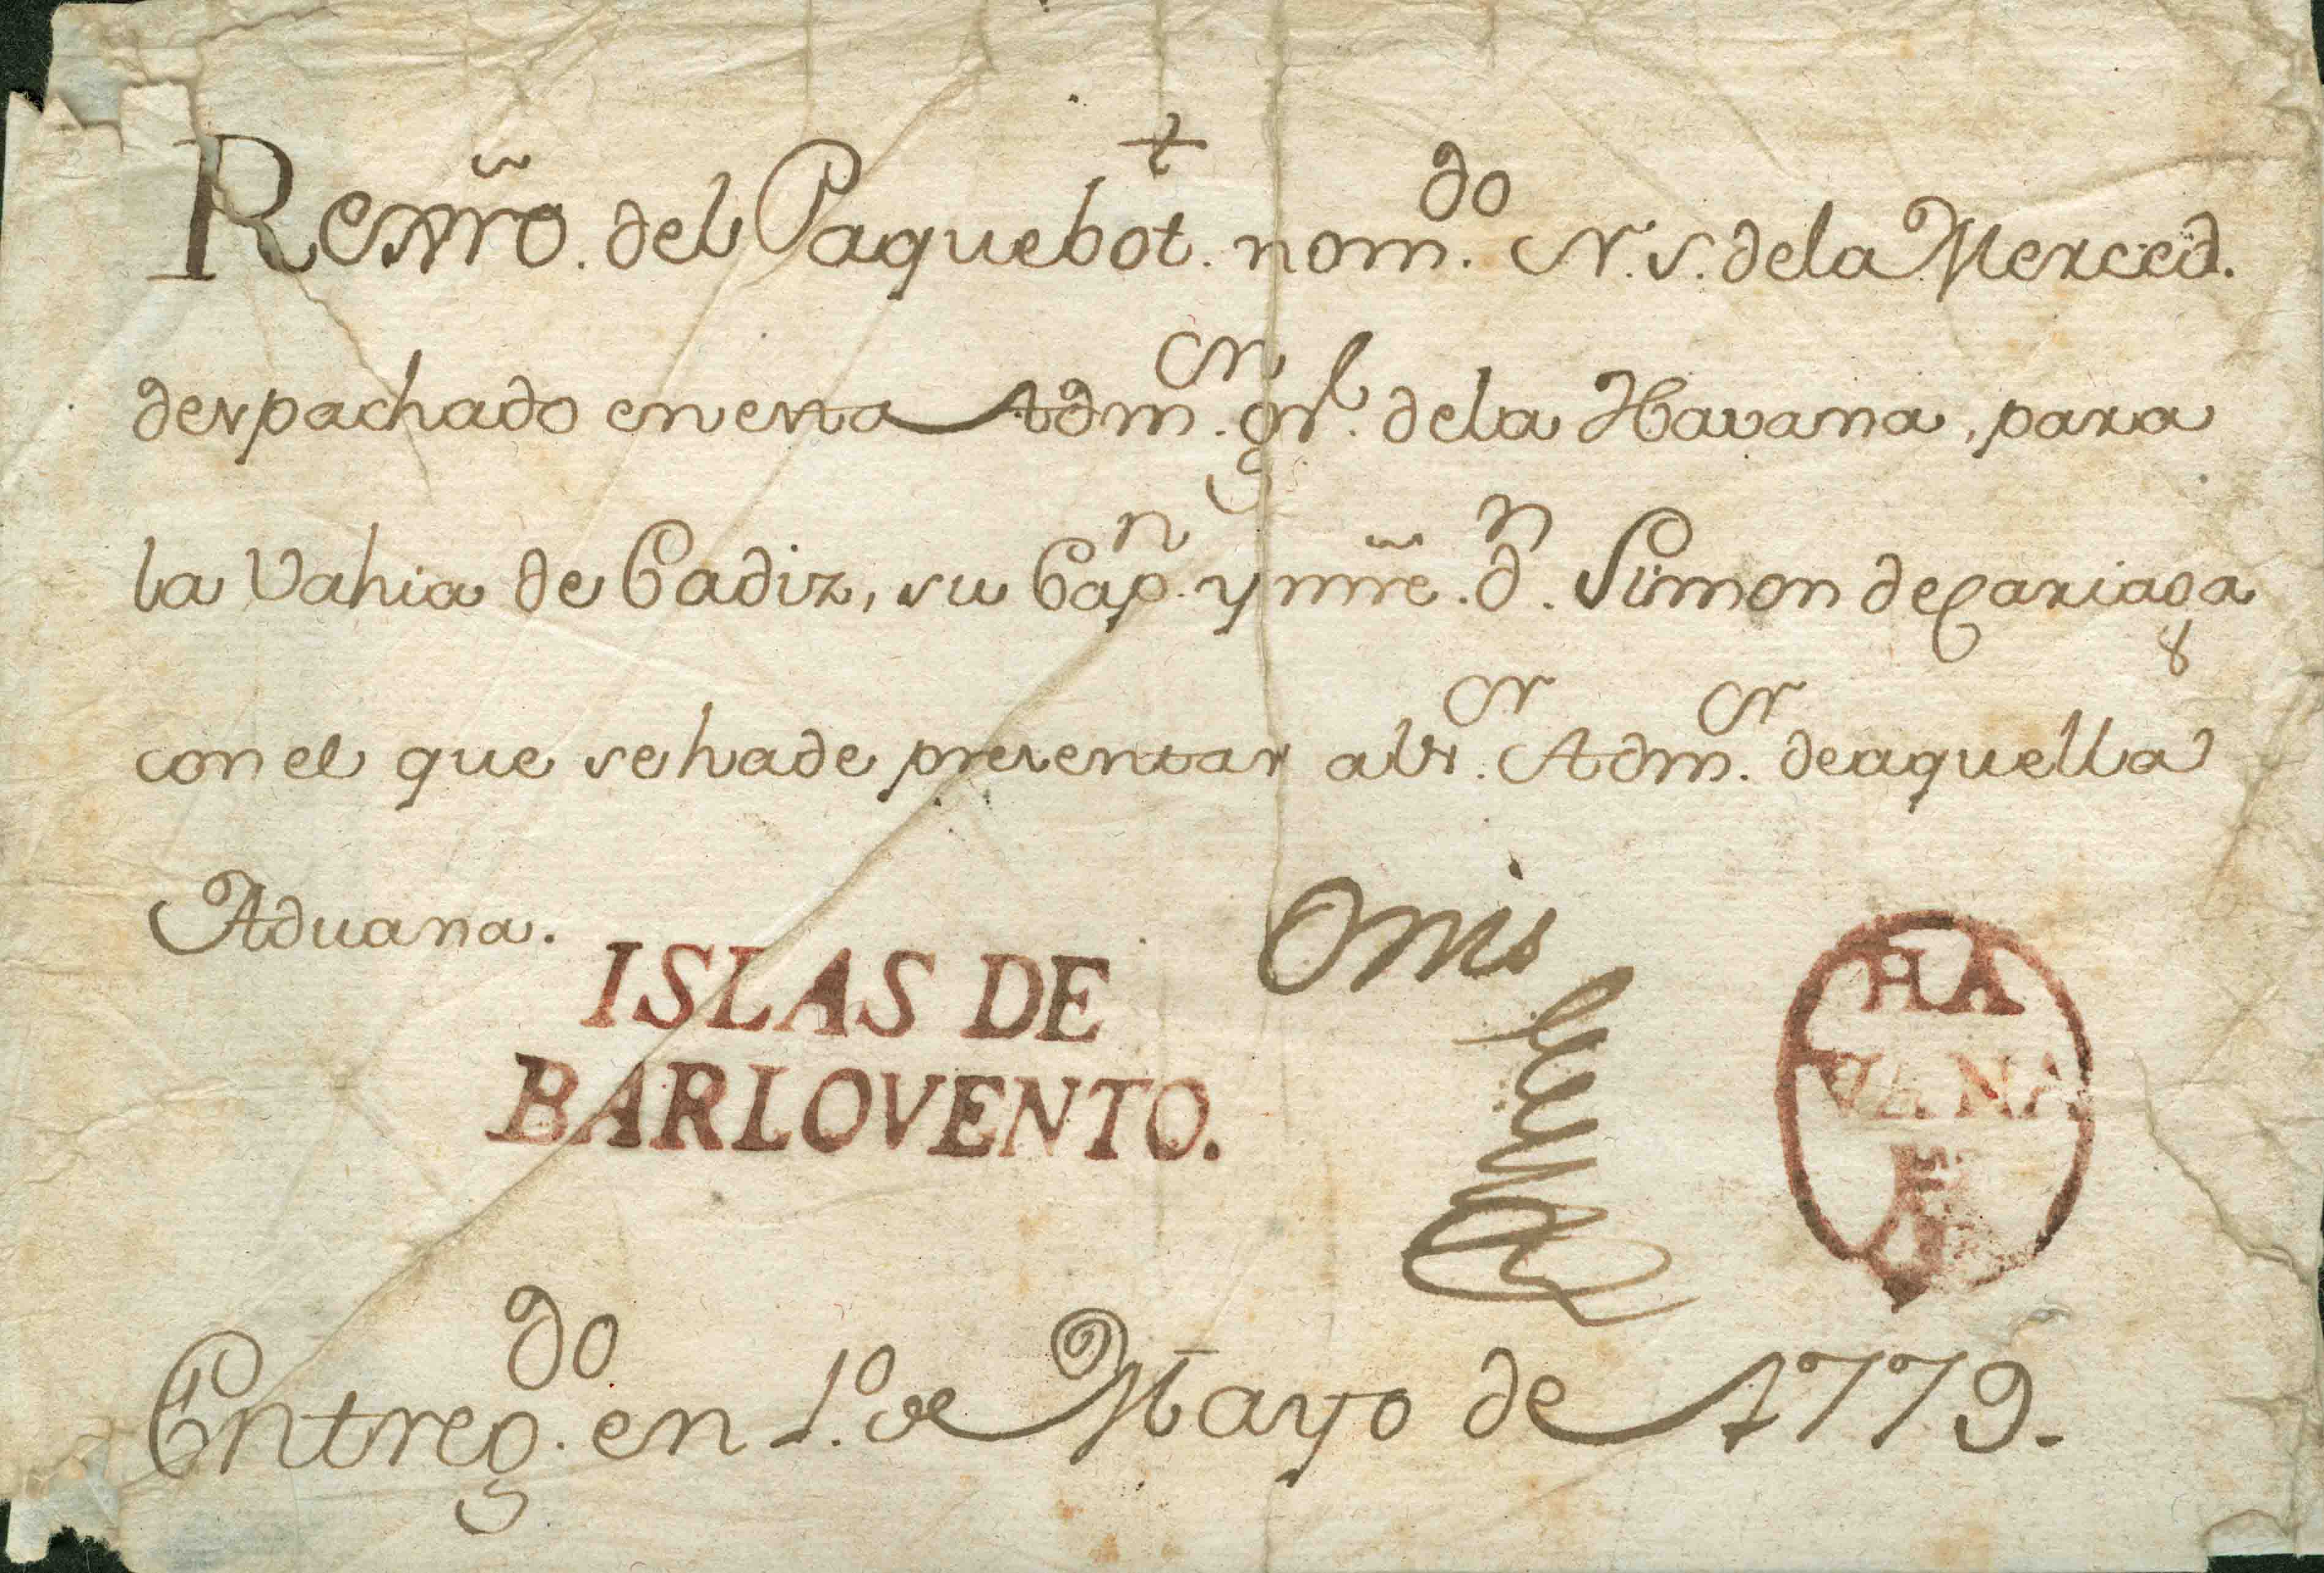 +
Rexro. del Paquebot. nom.do N. S. dela Merced.
despachado en esta Adm.on grl. dela Havana, para
la Vahia de Cadiz, su Cap.n y mre. d.n Simon de Cariaga
con el que sehade presentar als.or Adm.or deaquella
Aduana.
Onis
ISLAS DE
BARLOVENTO.
HA
VANA
Entreg.do en 1.o de Mayo de 1779.